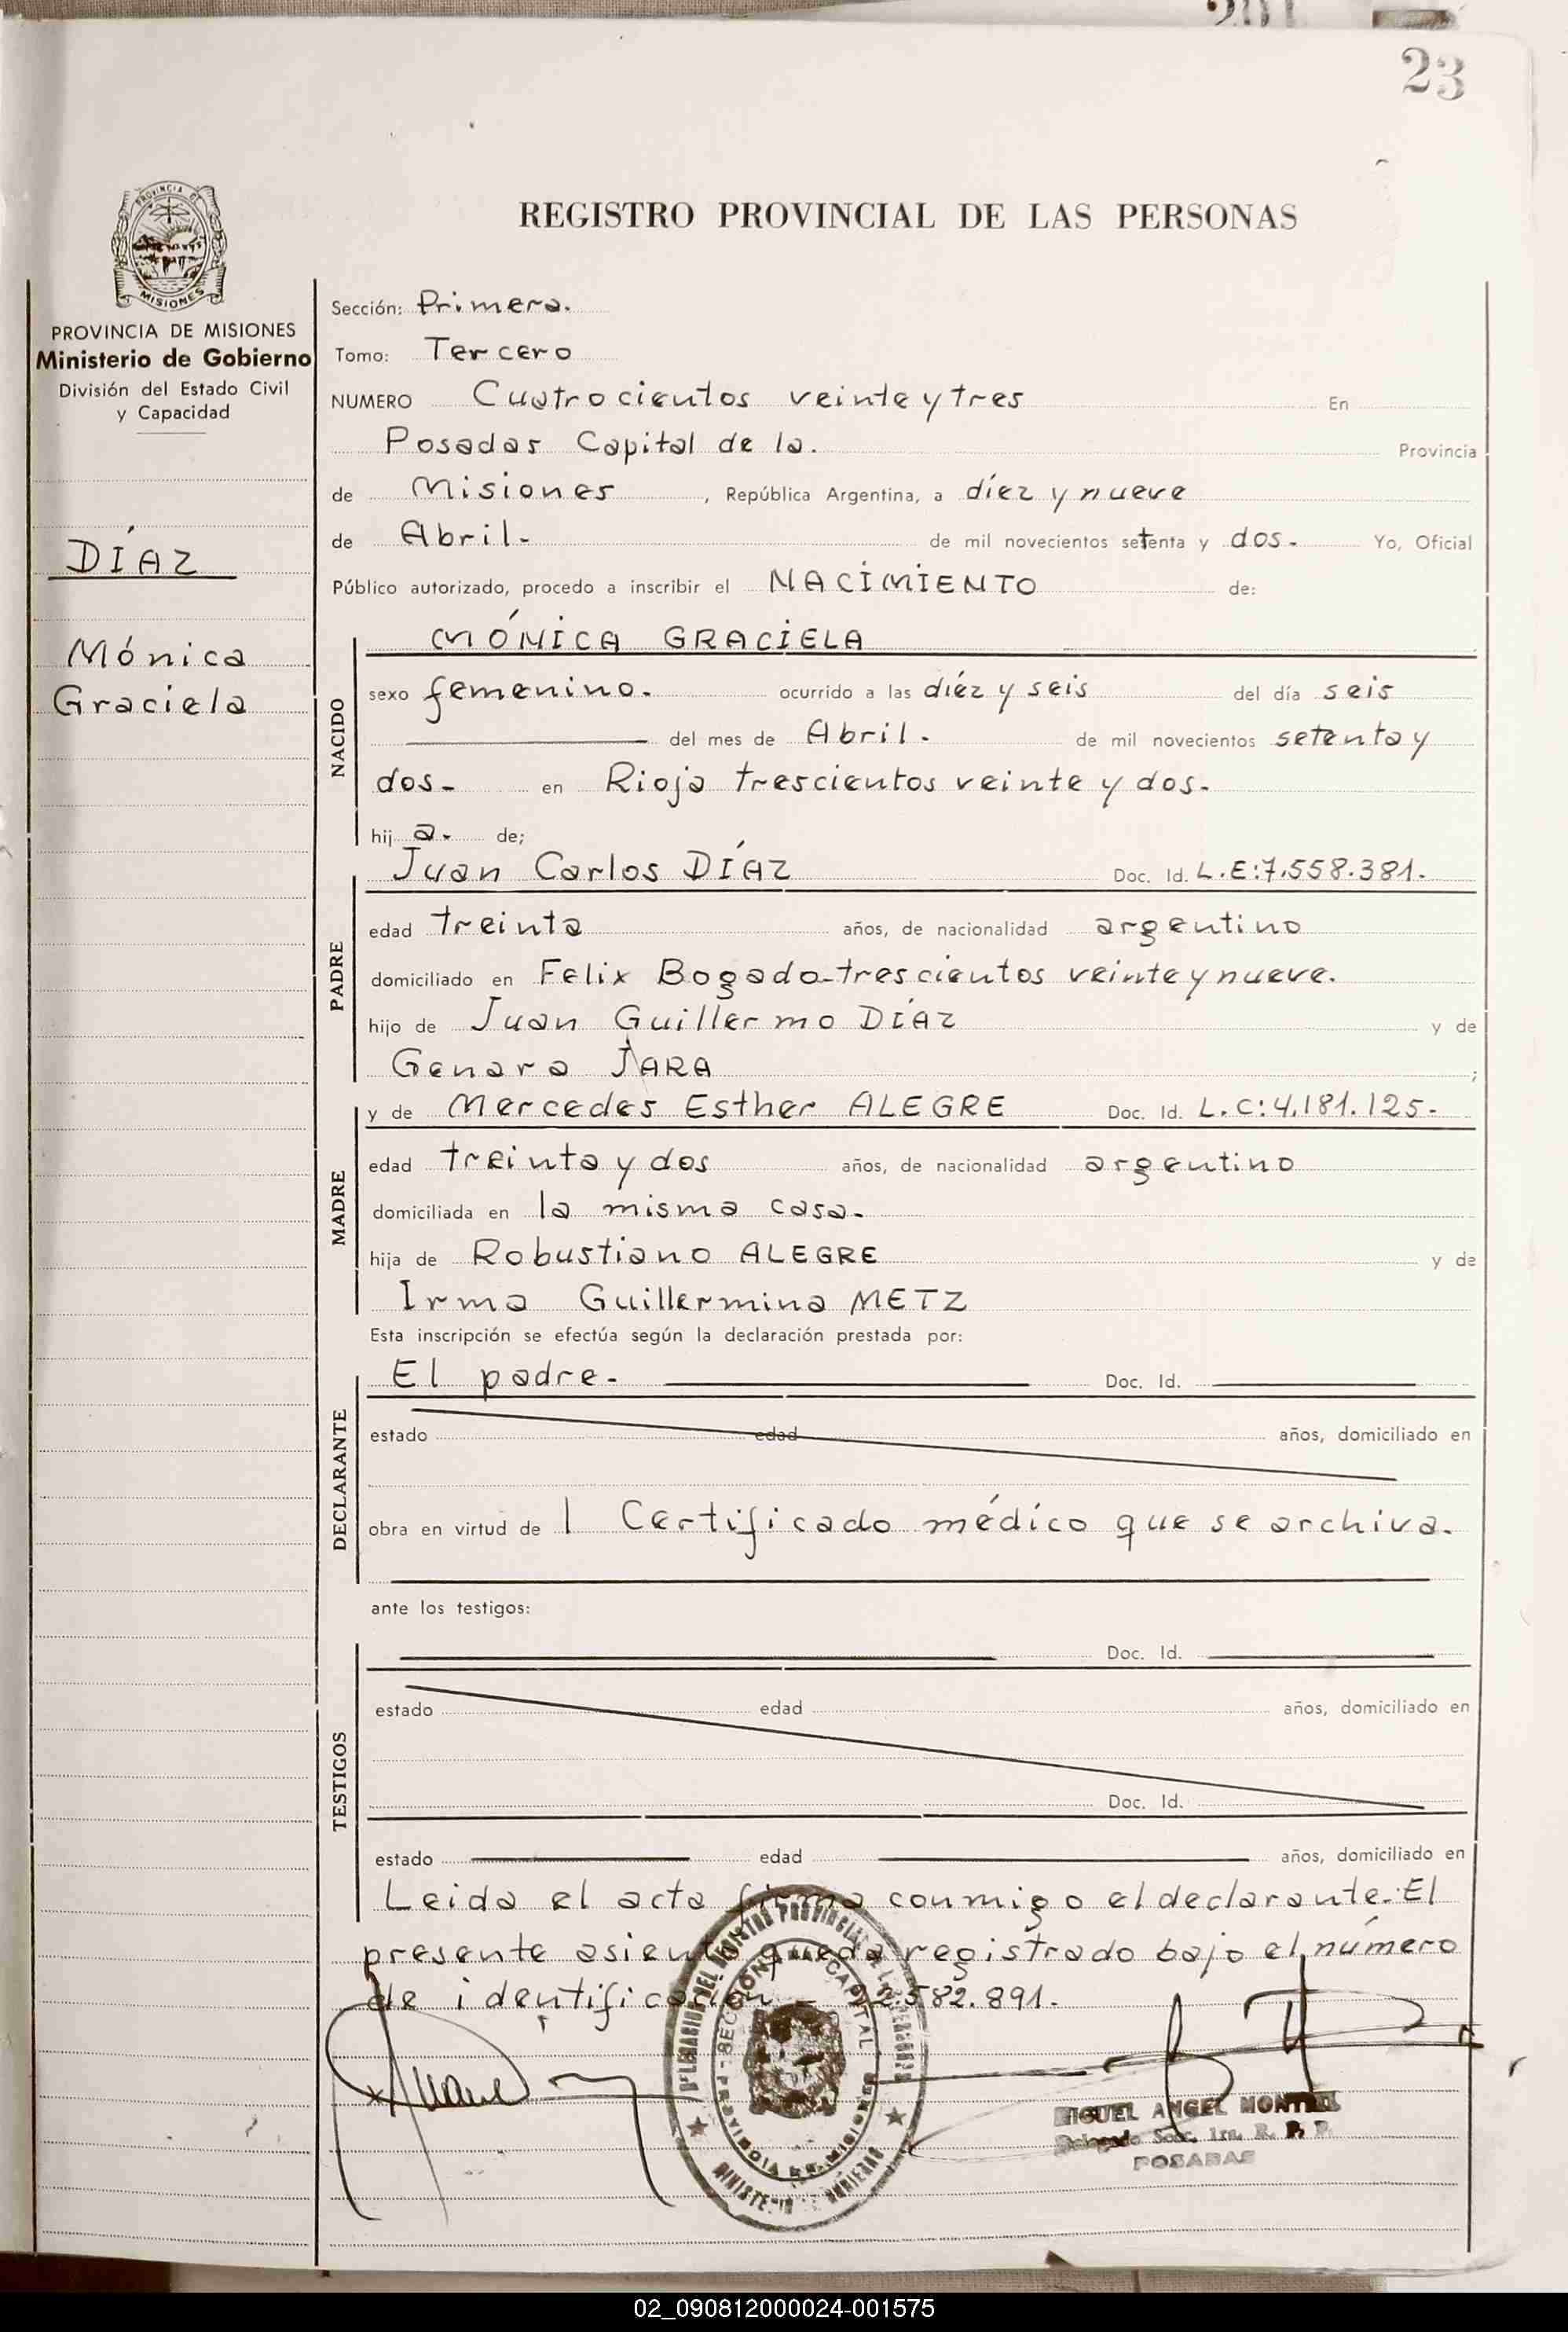 23
REGISTRO PROVINCIAL DE LAS PERSONAS
PROVINCIA DE MISIONES
Ministerio de Gobierno
División del Estado Civil
y Capacidad
DÍAZ
Mónica
Graciela
Sección: Primera.
Tomo: Tercero
NUMERO Cuatrocientos veinte y tres En
Posadas Capital de la. Provincia
de Misiones, República Argentina, a diez y nueve
de Abril. de mil novecientos setenta y dos. Yo, Oficial
Público autorizado, procedo a inscribir el NACIMIENTO de:
NACIDO
MÓNICA GRACIELA
sexo femenino. ocurrido a las diéz y seis del día seis
del mes de Abril. de mil novecientos setenta y
dos- en Rioja trescientos veinte y dos.
hij a. de;
PADRE
Juan Carlos DÍAZ Doc. Id. L.E:7.558.381.
edad treinta años, de nacionalidad argentino
domiciliado en Felix Bogado-trescientos veinte y nueve.
hijo de Juan Guillermo DÍAZ y de
Genara JARA ;
MADRE
y de Mercedes Esther ALEGRE Doc. Id. L.C:4.181.125-
edad treinta y dos años, de nacionalidad argentino
domiciliada en la misma casa.
hija de Robustiano ALEGRE y de
Irma Guillermina METZ
Esta inscripción se efectúa según la declaración prestada por:
DECLARANTE
El padre. Doc. Id.
estado edad años, domiciliado en
obra en virtud de 1 Certificado médico que se archiva.
ante los testigos:
TESTIGOS
Doc. Id.
estado edad años, domiciliado en
Doc. Id.
estado edad años, domiciliado en
Leida el acta firma conmigo el declarante. El
presente asiento queda registrado bajo el número
de identificación 582.891.
MIGUEL ANGEL
POSADAS
02_090812000024-001575